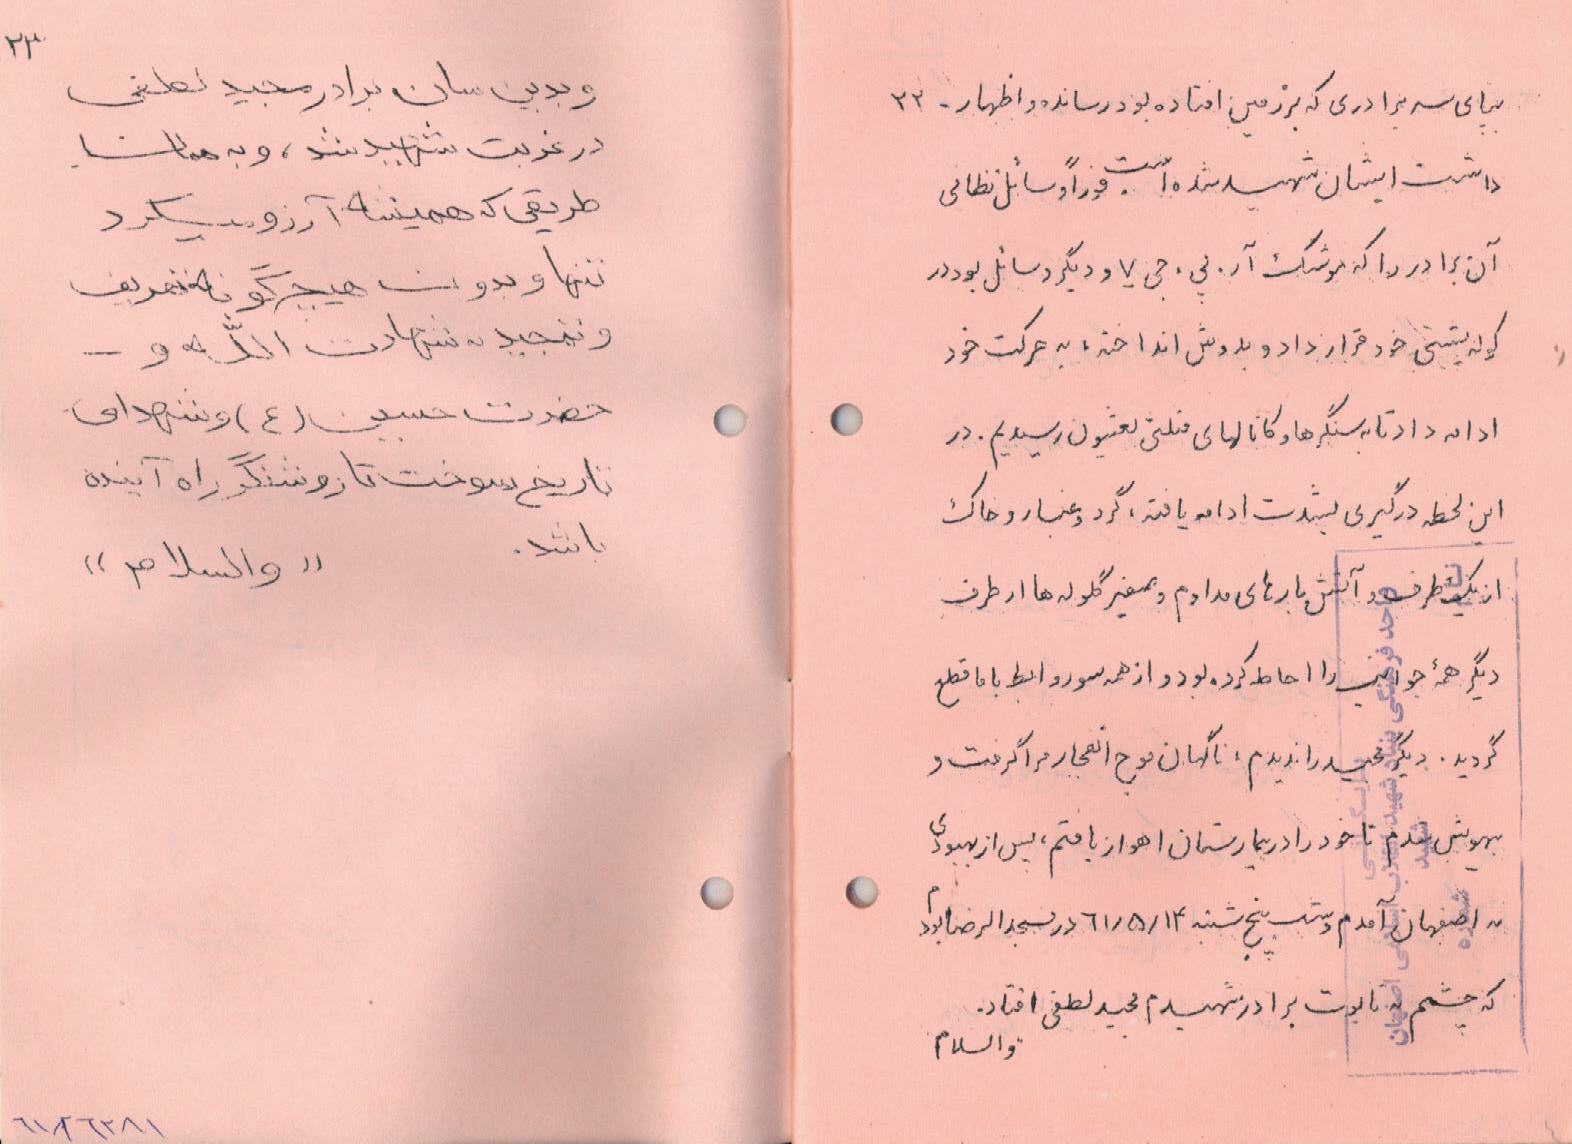 بپای سه برادری که بر زمین افتاده بود رسانده و اظهار - ۲۲
داشت ایشان شهید شده است فوراً وسائل نظامی
آن برادر را که موشک آر.پی.جی ۷ و دیگر وسائل بود در
کوله پشتی خود قرار داد و بدوش انداخته، به حرکت خود
ادامه داد تا به سنگرها و کانالهای مثلثی بعثیون رسیدیم. در
این لحظه درگیری بشدت ادامه یافته، گرد و غبار و خاک
از یکطرف و آتش بارهای مداوم و صفیر گلوله ها از طرف
دیگر همهٔ جوانب را احاطه کرده بود و از همه سو روابط با ما قطع
گردید. دیگر مجید را ندیدم، ناگهان موج انفجار مرا گرفت و
بیهوش شدم تا خود را در بیمارستان اهواز یافتم، پس از بهبودی
به اصفهان آمدم و شب پنج شنبه ۶۱/۵/۱۴ در مسجد الرضا بودم
که چشمم به تابوت برادر شهیدم مجید لطفی افتاد.
والسلام
واحد فرهنگی بنیاد شهید انقلاب اسلامی اصفهان
نام
شهید
شماره
۲۳
و بدین سان برادر مجید لطفی
در غربت شهید شد، و به همان
طریقی که همیشه آرزو میکرد
تنها و بدون هیچگونه تعریف
و تمجید به شهادت الله و -
حضرت حسین (ع) و شهدای
تاریخ سوخت تا روشنگر راه آینده
باشد.
"والسلام"